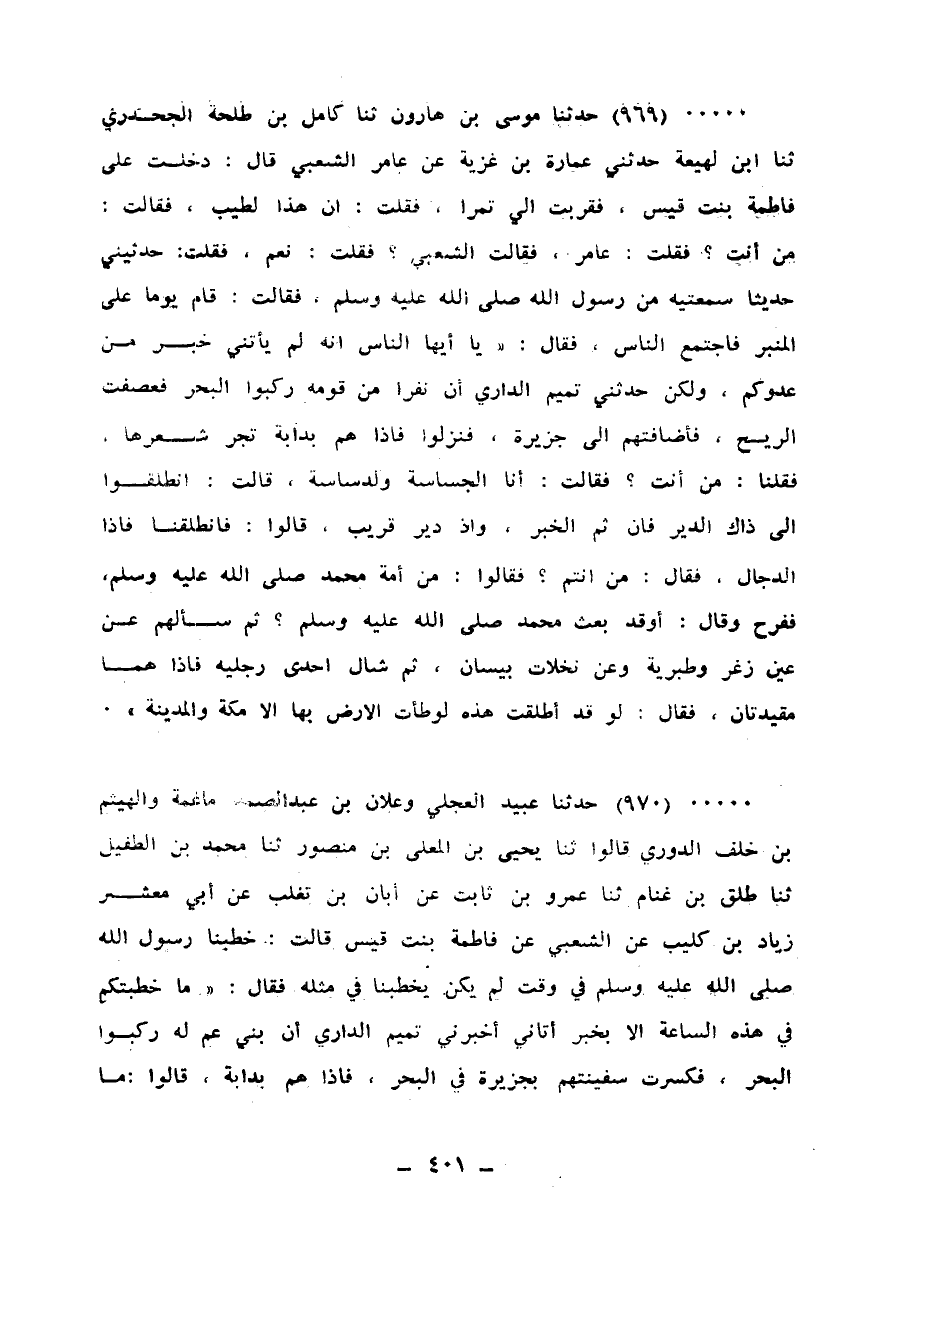 ٠٠٠٠٠ (٩٦٩) حدثنا موسى بن هارون ثنا كامل بن طلحة الجحدري
ثنا ابن لهيعة حدثني عمارة بن غزية عن عامر الشعبي قال : دخلت على
فاطمة بنت قيس ، فقربت الي تمرا ، فقلت : ان هذا لطيب ، فقالت :
من أنت ؟ فقلت : عامر ، فقالت الشعبي ؟ فقلت : نعم ، فقلت: حدثيني
حديثا سمعتيه من رسول الله صلى الله عليه وسلم ، فقالت : قام يوما على
المنبر فاجتمع الناس ، فقال : « يا أيها الناس انه لم يأتني خبر من
عدوكم ، ولكن حدثني تميم الداري أن نفرا من قومه ركبوا البحر فعصفت
الريح ، فأضافتهم الى جزيرة ، فنزلوا فاذا هم بدابة تجر شعرها ،
فقلنا : من أنت ؟ فقالت : أنا الجساسة ولدساسة ، قالت : انطلقوا
الى ذاك الدير فان ثم الخبر ، واذ دير قريب ، قالوا : فانطلقنا فاذا
الدجال ، فقال : من انتم ؟ فقالوا : من أمة محمد صلى الله عليه وسلم،
ففرح وقال : أوقد بعث محمد صلى الله عليه وسلم ؟ ثم سألهم عن
عين زغر وطبرية وعن نخلات بيسان ، ثم شال احدى رجليه فاذا هما
مقيدتان ، فقال : لو قد أطلقت هذه لوطأت الارض بها الا مكة والمدينة » ٠
٠٠٠٠٠ (٩٧٠) حدثنا عبيد العجلي وعلان بن عبدالصمد ماغمة والهيثم
بن خلف الدوري قالوا ثنا يحيى بن المعلى بن منصور ثنا محمد بن الطفيل
ثنا طلق بن غنام ثنا عمرو بن ثابت عن أبان بن تغلب عن أبي معشر
زياد بن كليب عن الشعبي عن فاطمة بنت قيس قالت : خطبنا رسول الله
صلى الله عليه وسلم في وقت لم يكن يخطبنا في مثله فقال : « ما خطبتكم
في هذه الساعة الا بخبر أتاني أخبرني تميم الداري أن بني عم له ركبوا
البحر ، فكسرت سفينتهم بجزيرة في البحر ، فاذا هم بدابة ، قالوا :ما
– ٤٠١ –